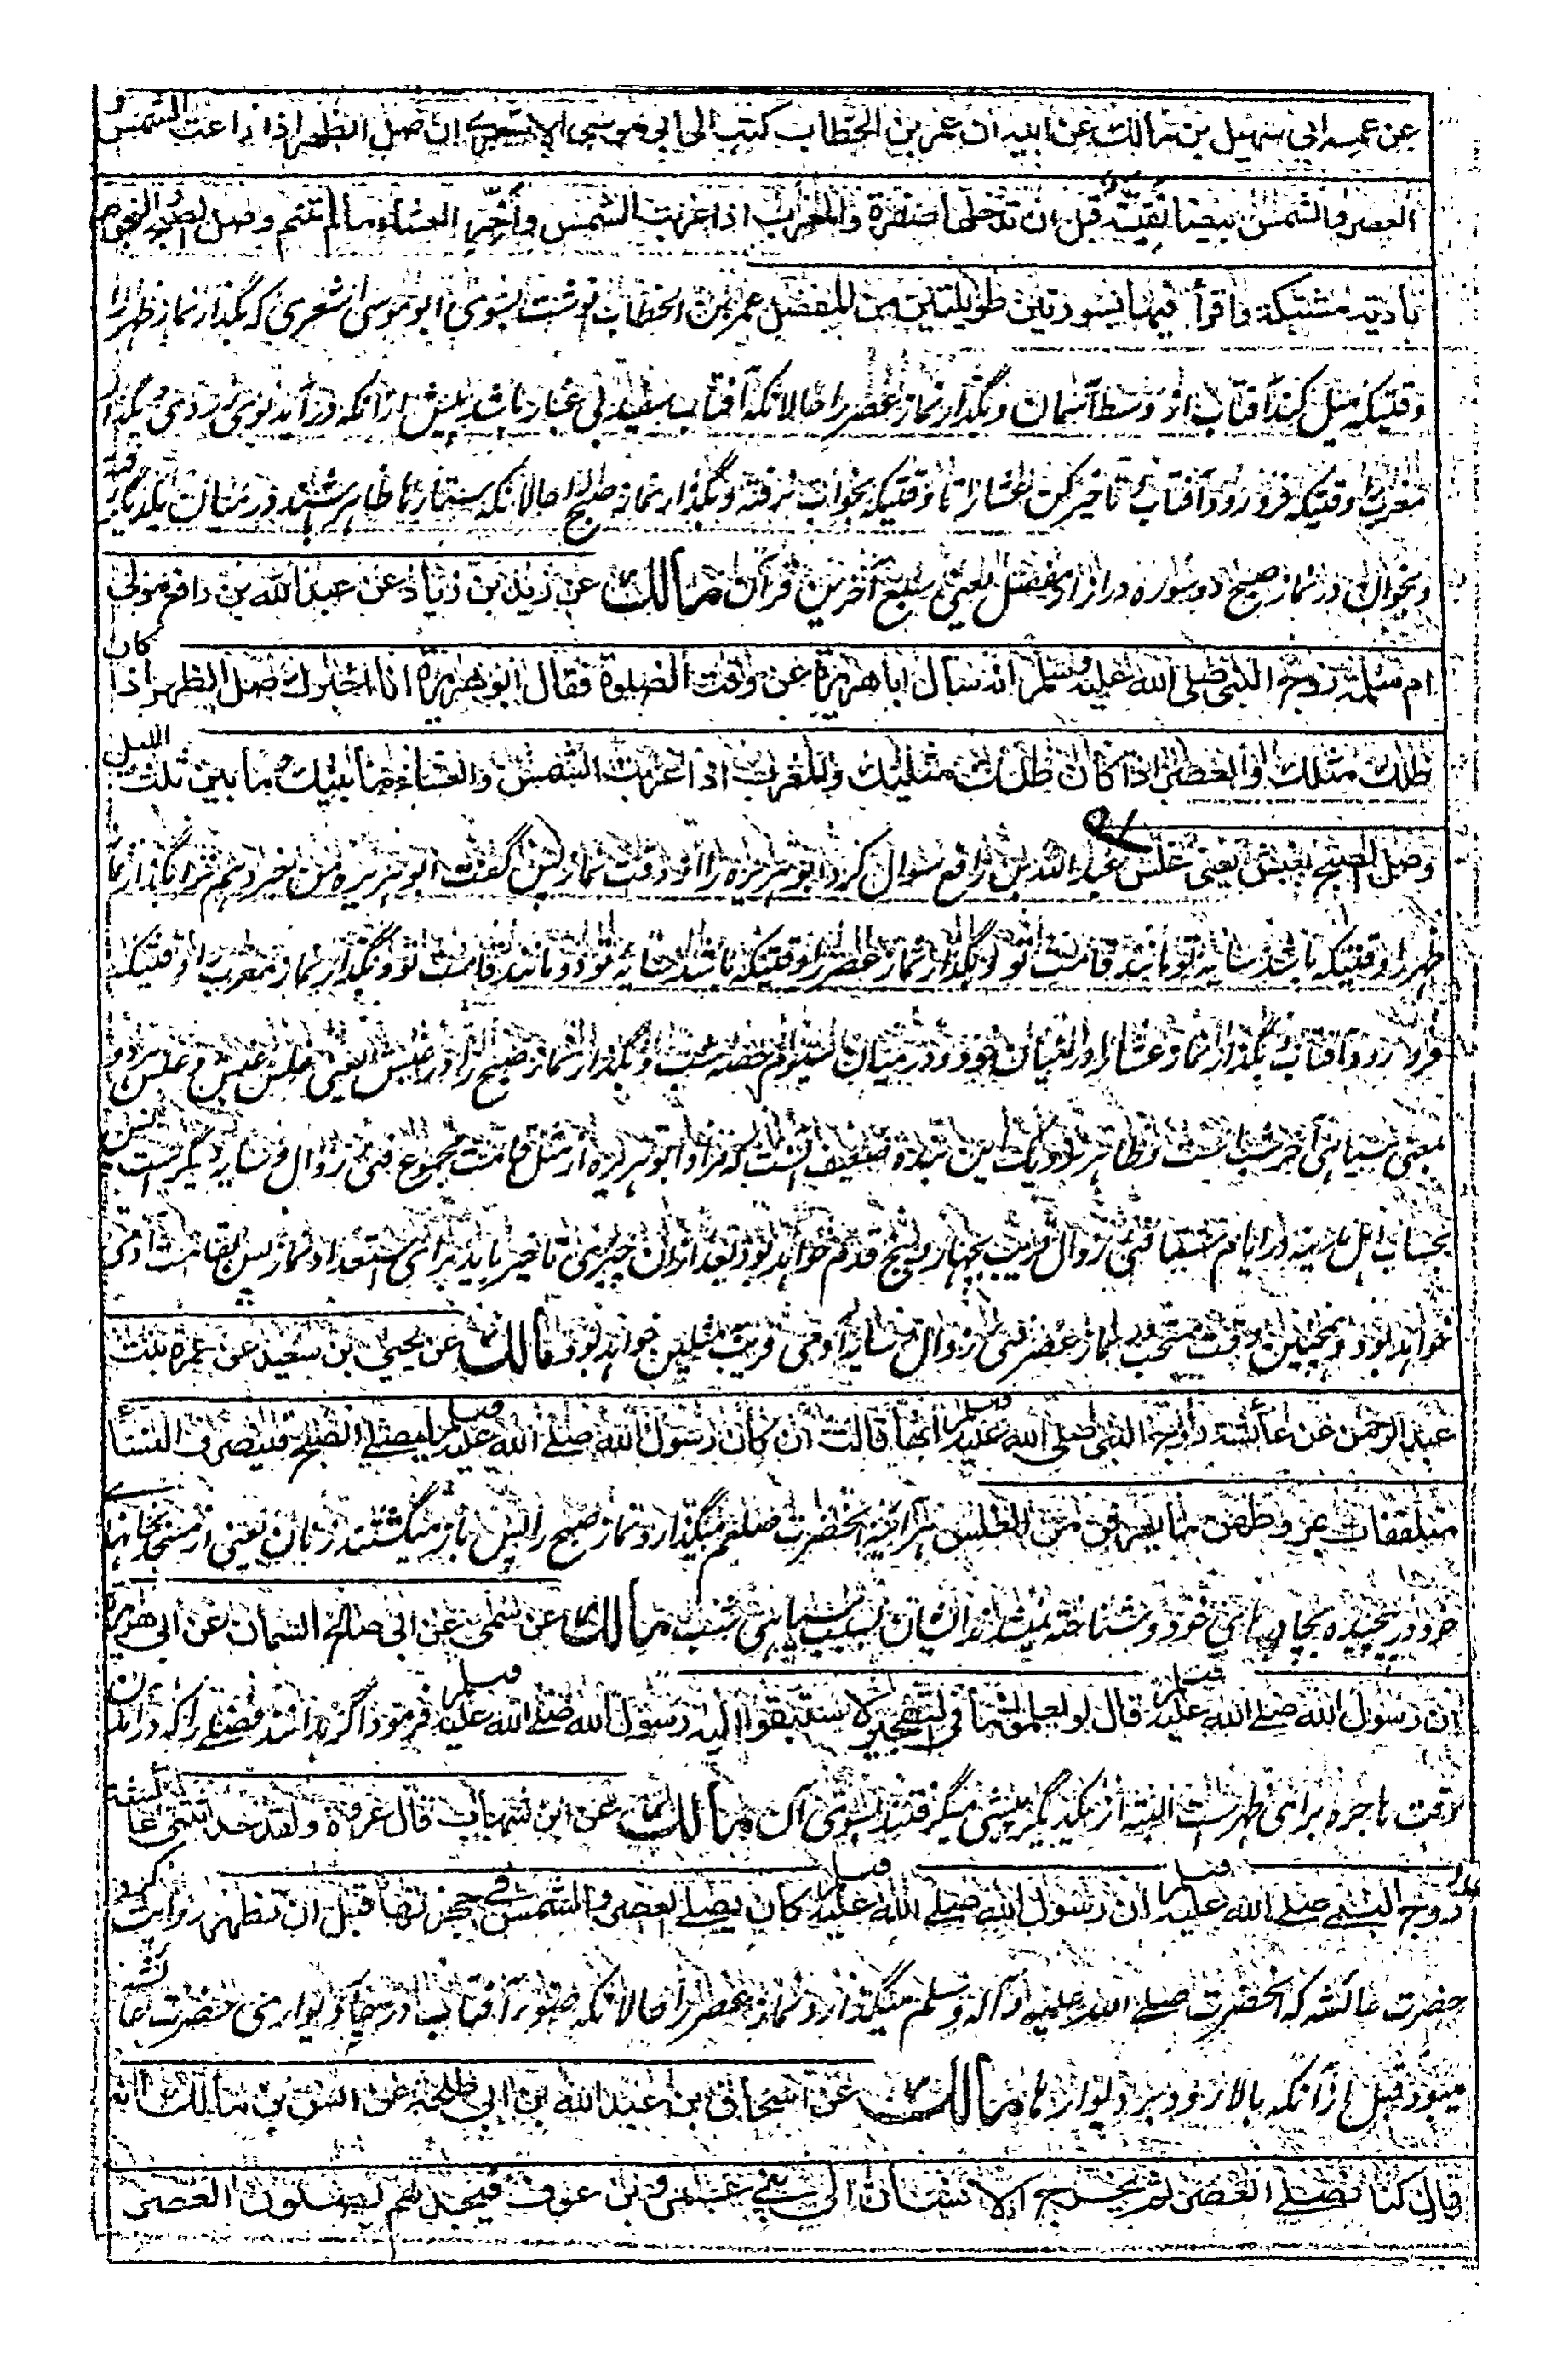 عن عمه ابى سهيل بن مالك عن ابيه ان عمر بن الخطاب كتب الى ابى موسى الاشعرى ان صل الظهر اذا زاغت الشمس و
العصر والشمس بيضا نقية قبل ان تدخلها صفرة والمغرب اذا غربت الشمس وأخّر العشاء مالم تنم وصل الصبح والنجوم
بادية مشتبكة واقرأ فيها بسورتين طويلتين من المفصل عمر بن الخطاب نوشت بسوى ابو موسى اشعرى كه بگذار نماز ظهر را
وقتيكه ميل كند آفتاب از وسط آسمان وبگذار نماز عصر را حالانكه آفتاب سفيد بى غبار باشد پيش ازانكه درآيد بوى زردى و بگذار
مغرب را وقتيكه فرو رود آفتاب و تاخير كن عشا را تا وقتيكه بخواب نرفته و بگذار نماز صبح را حالانكه ستارها ظاهر باشند درميان يكديگر رفته
و بخوان در نماز صبح دو سوره دراز از مفصل يعنى سبع آخرين قرآن مالك عن زيد بن زياد عن عبد الله بن رافع مولى
ام سلمة زوج النبى صلى الله عليه وسلم انه سأل ابا هريرة عن وقت الصلوة فقال ابو هريرة انا اخبرك صل الظهر اذا كان
ظلك مثلك والعصر اذا كان ظلك مثليك والمغرب اذا غربت الشمس والعشاء ما بينك و ما بين ثلث الليل
وصل الصبح بغبش يعنى غلس عبد الله بن رافع سوال كرد ابو هريره را از وقت نماز پس گفت ابو هريره من خبر دهم ترا بگذار نماز
ظهر را وقتيكه باشد سايه تو مانند قامت تو و بگذار نماز عصر را وقتيكه باشد سايه تو دو مانند قامت تو و بگذار نماز مغرب را وقتيكه
فرو رود آفتاب و بگذار نماز عشا را درميان خود و درميان سيوم حصه شب و بگذار نماز صبح را در غبش يعنى غلس غبش و غلس هر دو
بمعنى سياهى آخر شب ست و ظاهر نزديك اين بنده ضعيف آنست كه مراد ابو هريره از مثل قامت مجموع فئ زوال و سايه ديگر ست پس
بحساب اهل مدينه در ايام فئ زوال قريب بچهار و پنج قدم خواهد بود بعد ازان چيزى تاخير بايد براى استعداد نماز پس بقامت آدمى
خواهد بود و همچنين وقت مستحب نماز عصر فئ زوال و سايه آدمى قريب مثلين خواهد بود مالك عن يحيى بن سعيد عن عمرة بنت
عبد الرحمن عن عائشة زوج النبى صلى الله عليه وسلم انها قالت ان كان رسول الله صلى الله عليه وسلم ليصلى الصبح فينصرف النساء
متلففات بمروطهن ما يعرفن من الغلس هر آئينه آنحضرت صلعم ميگذارد نماز صبح را پس باز ميگشتند زنان يعنى از مسجد بخانها
خود در پيچيده بچادرهاى خود و شناخته نميشدند ايشان بسبب سياهى شب مالك عن سمى عن ابى صالح السمان عن ابى هريرة
ان رسول الله صلى الله عليه وسلم قال لو يعلمون ما فى التهجير لاستبقوا اليه رسول الله صلى الله عليه وسلم فرمود اگر بدانند فضلے را كه در آمدن
بوقت هاجره براى ظهر ست البته از يكديگر پيشى ميگرفتند بسوى آن مالك عن ابن شهاب قال عروة ولقد حدثتنى عائشة
زوج النبى صلى الله عليه وسلم ان رسول الله صلى الله عليه وسلم كان يصلى العصر والشمس فى حجرتها قبل ان تظهر روايت كرد
حضرت عائشه كه آنحضرت صلى الله عليه وآله وسلم ميگذارد نماز عصر را حالانكه ضوء آفتاب در حضرت عائشه
ميبود قبل ازانكه بالا رود بر ديوارها مالك عن اسحاق بن عبد الله بن ابى طلحة عن انس بن مالك انه
قال كنا نصلى العصر ثم يخرج الانسان الى بنى عمرو بن عوف فيجدهم يصلون العصر